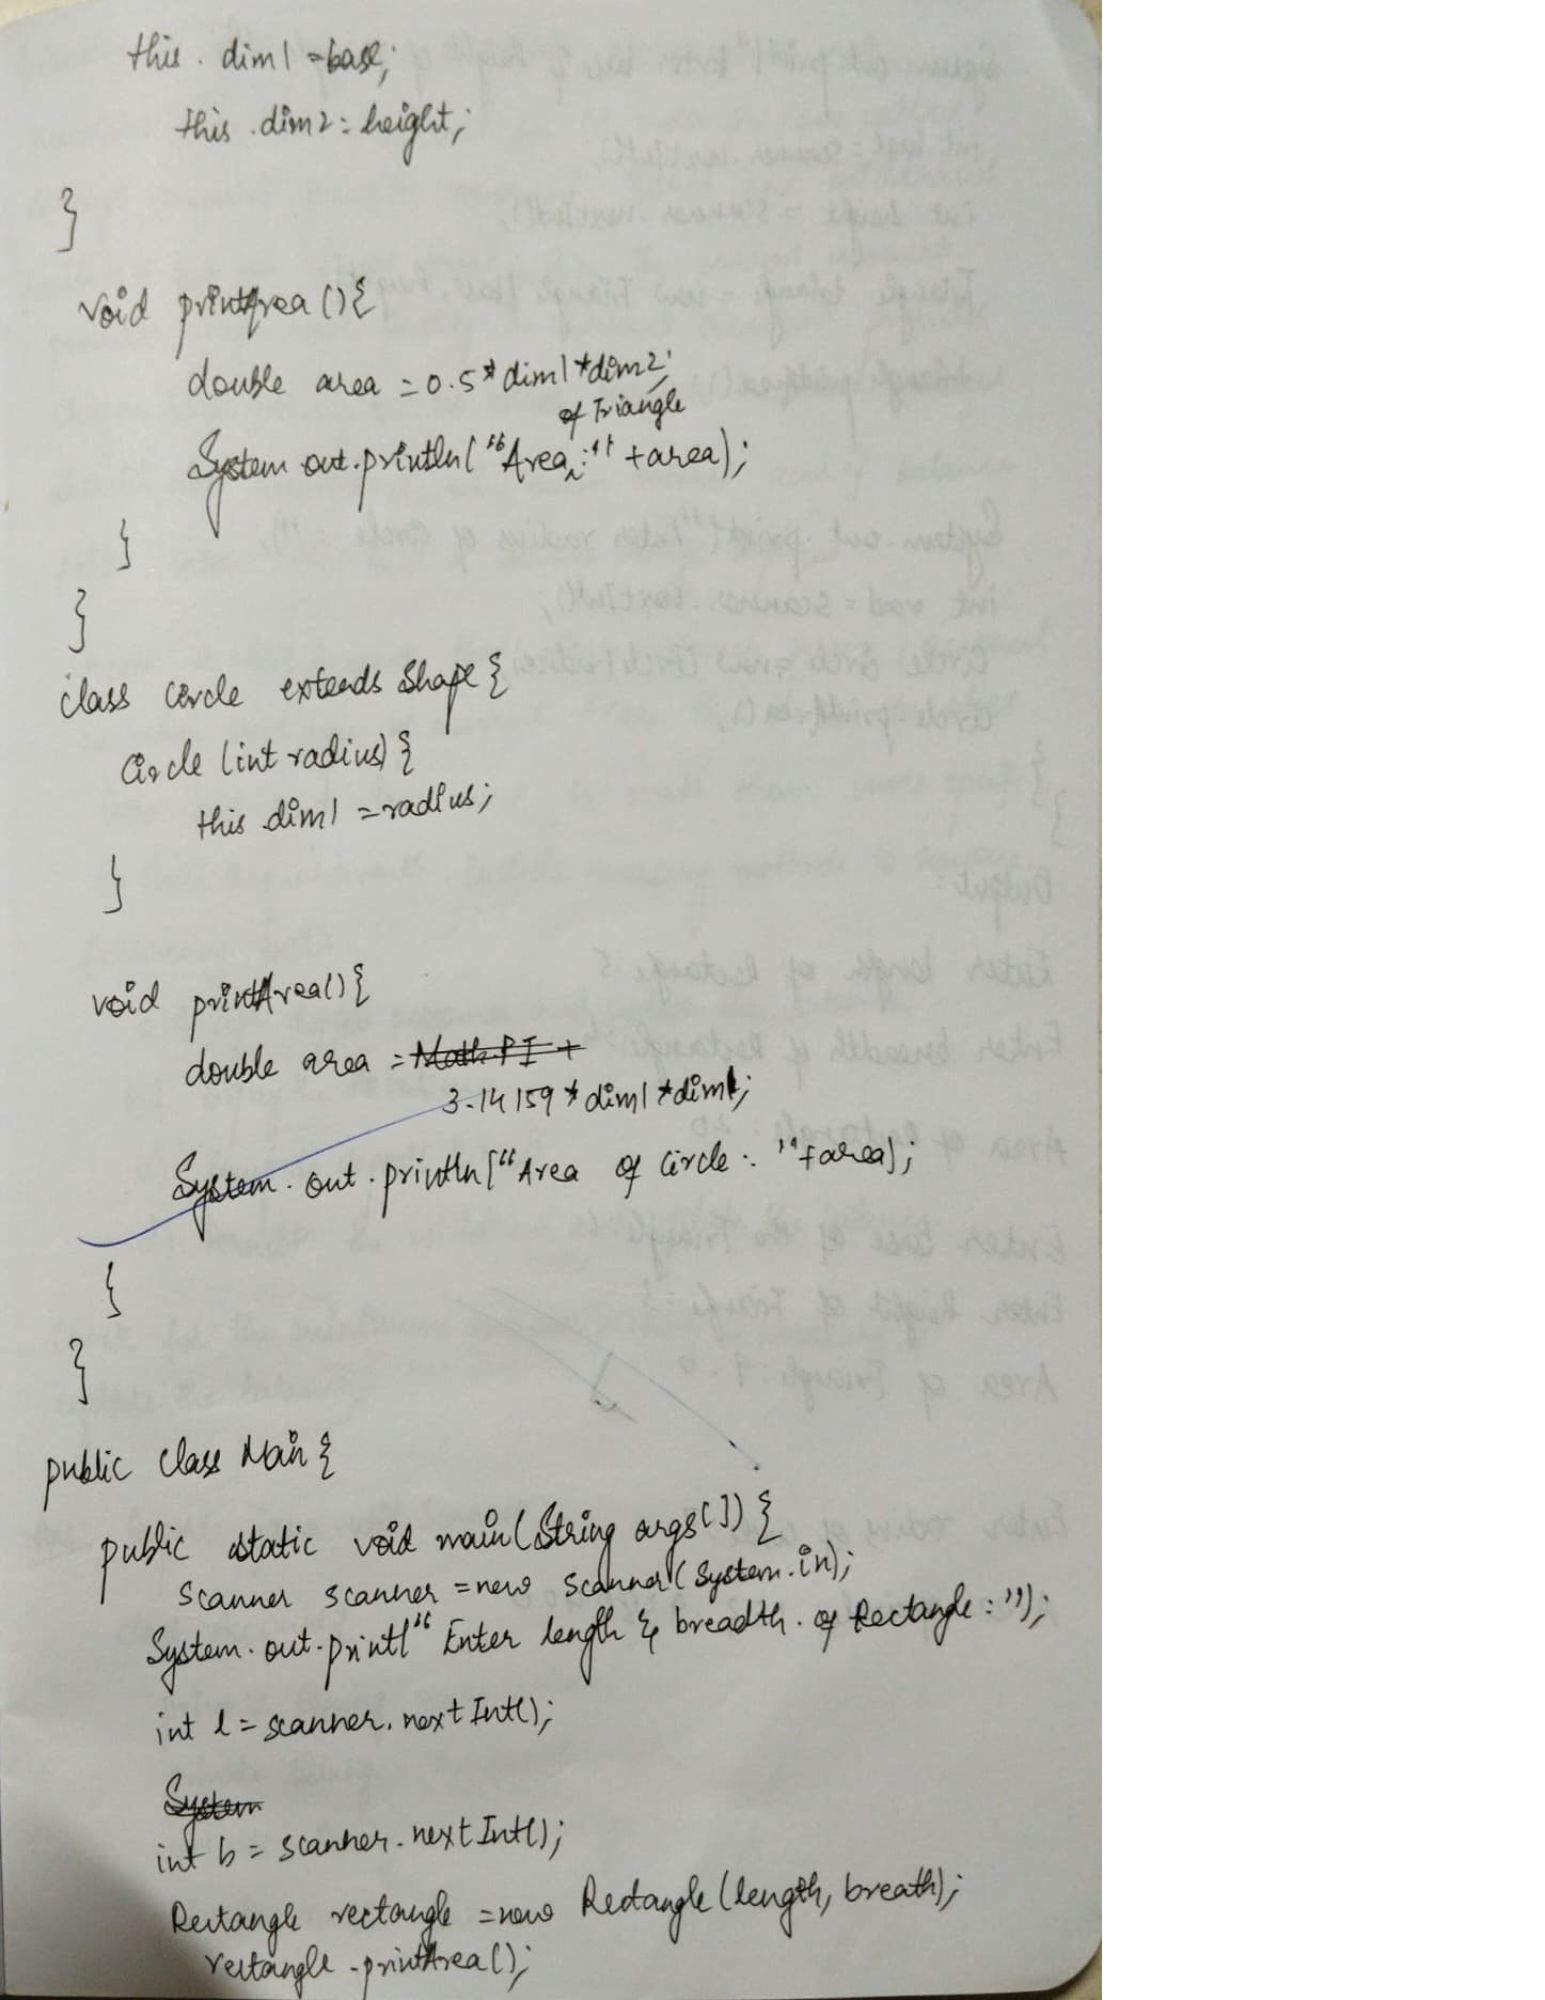 this. dim1 = base;
this .dim2 = height;
}
void printArea () {
double area = 0.5 * dim1 * dim2;
of Triangle
System out.println( "Area :" + area);
}
}
class Circle extends Shape {
Circle (int radius) {
this dim1 = radius;
}
void printArea() {
double area = Math.PI *
3.14159 * dim1 * dim1;
System. out. println("Area of Circle : " + area);
}
}
public class Main {
public static void main(String args[]) {
Scanner scanner = new Scanner(System.in);
System. out. print(" Enter length & breadth. of Rectangle : ");
int l = scanner. nextInt();
System
int b = scanner. nextInt();
Rectangle rectangle = new Rectangle (length, breath);
rectangle .printArea();